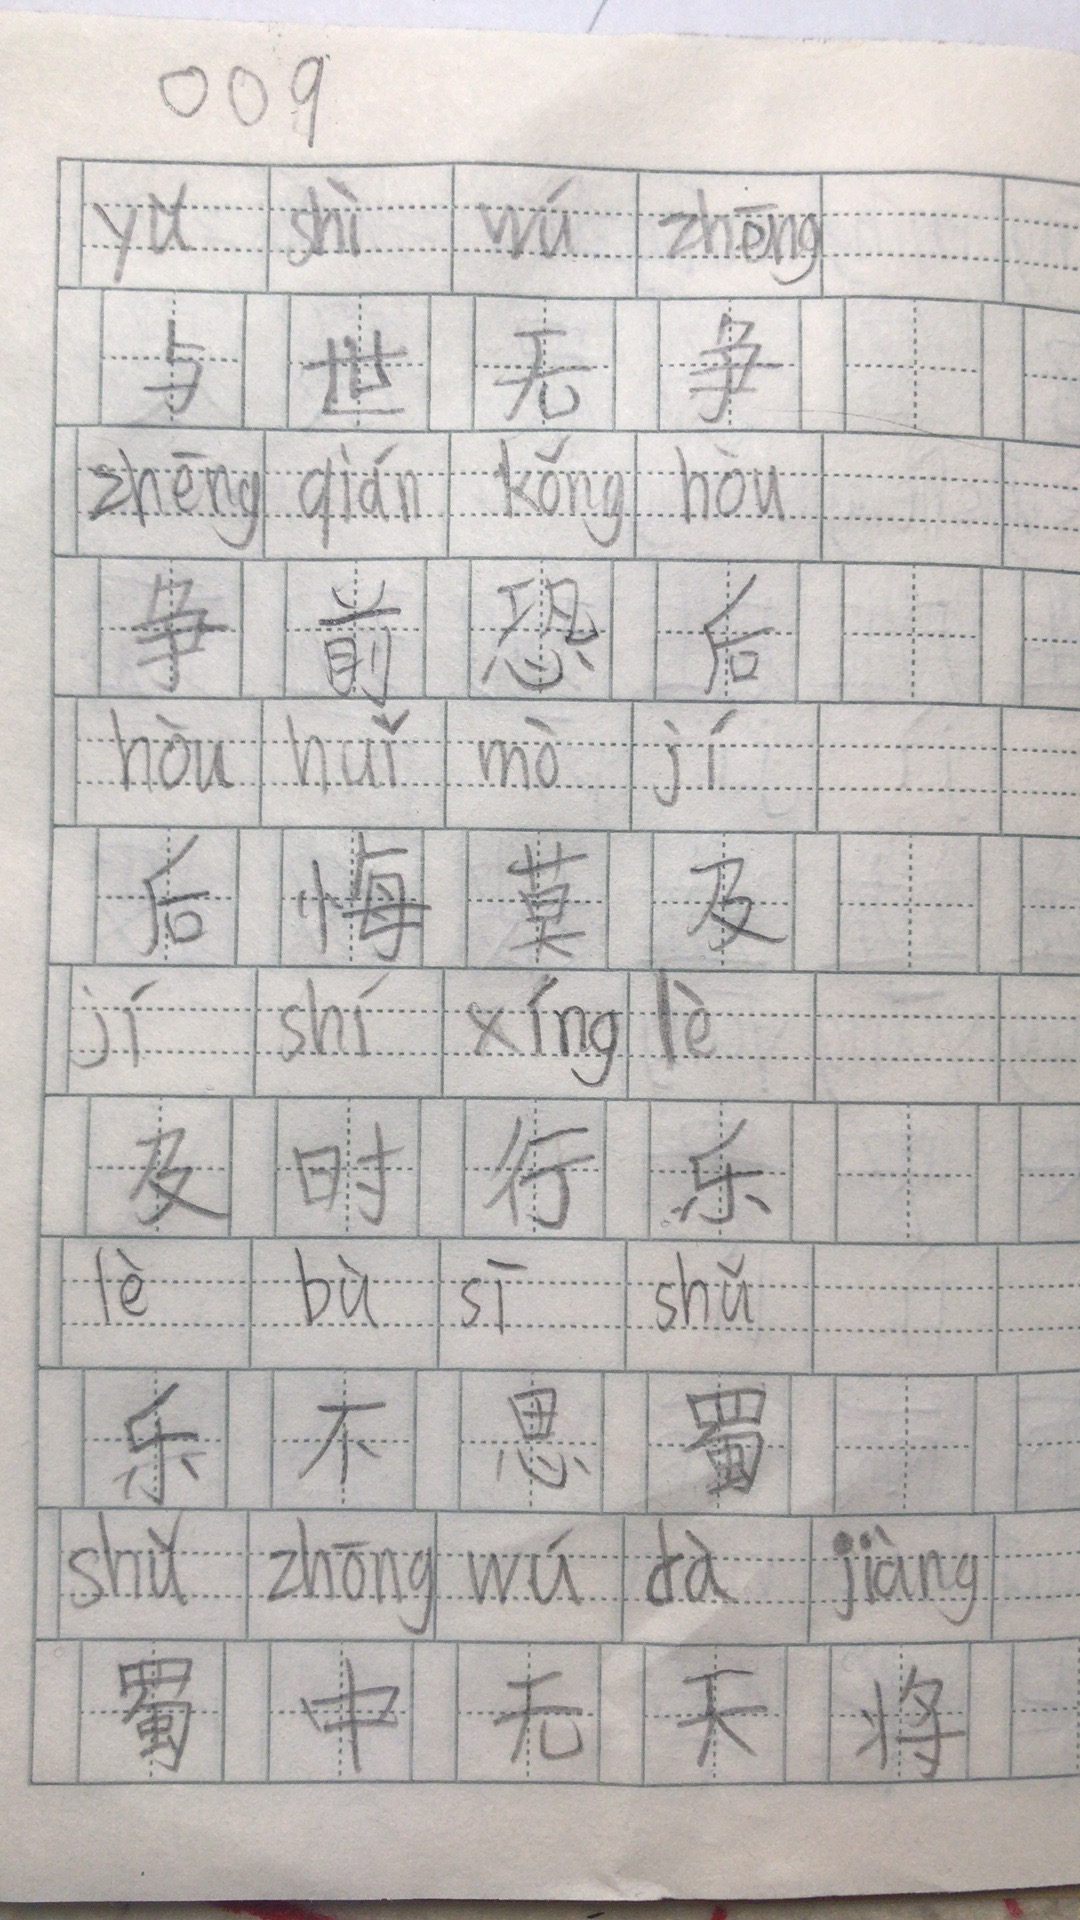 009
yǔ shì wú zhēng
与世无争
zhēng qián kǒng hòu
争前恐后
hòu huǐ mò jí
后悔莫及
jí shí xíng lè
及时行乐
lè bù sī shǔ
乐不思蜀
shǔ zhōng wú dà jiàng
蜀中无天将